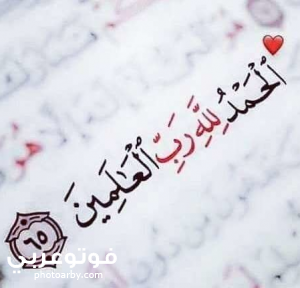 ٱلْحَمْدُ لِلَّهِ رَبِّ ٱلْعَٰلَمِينَ ٦٥
فوتوعربي
photoarby.com